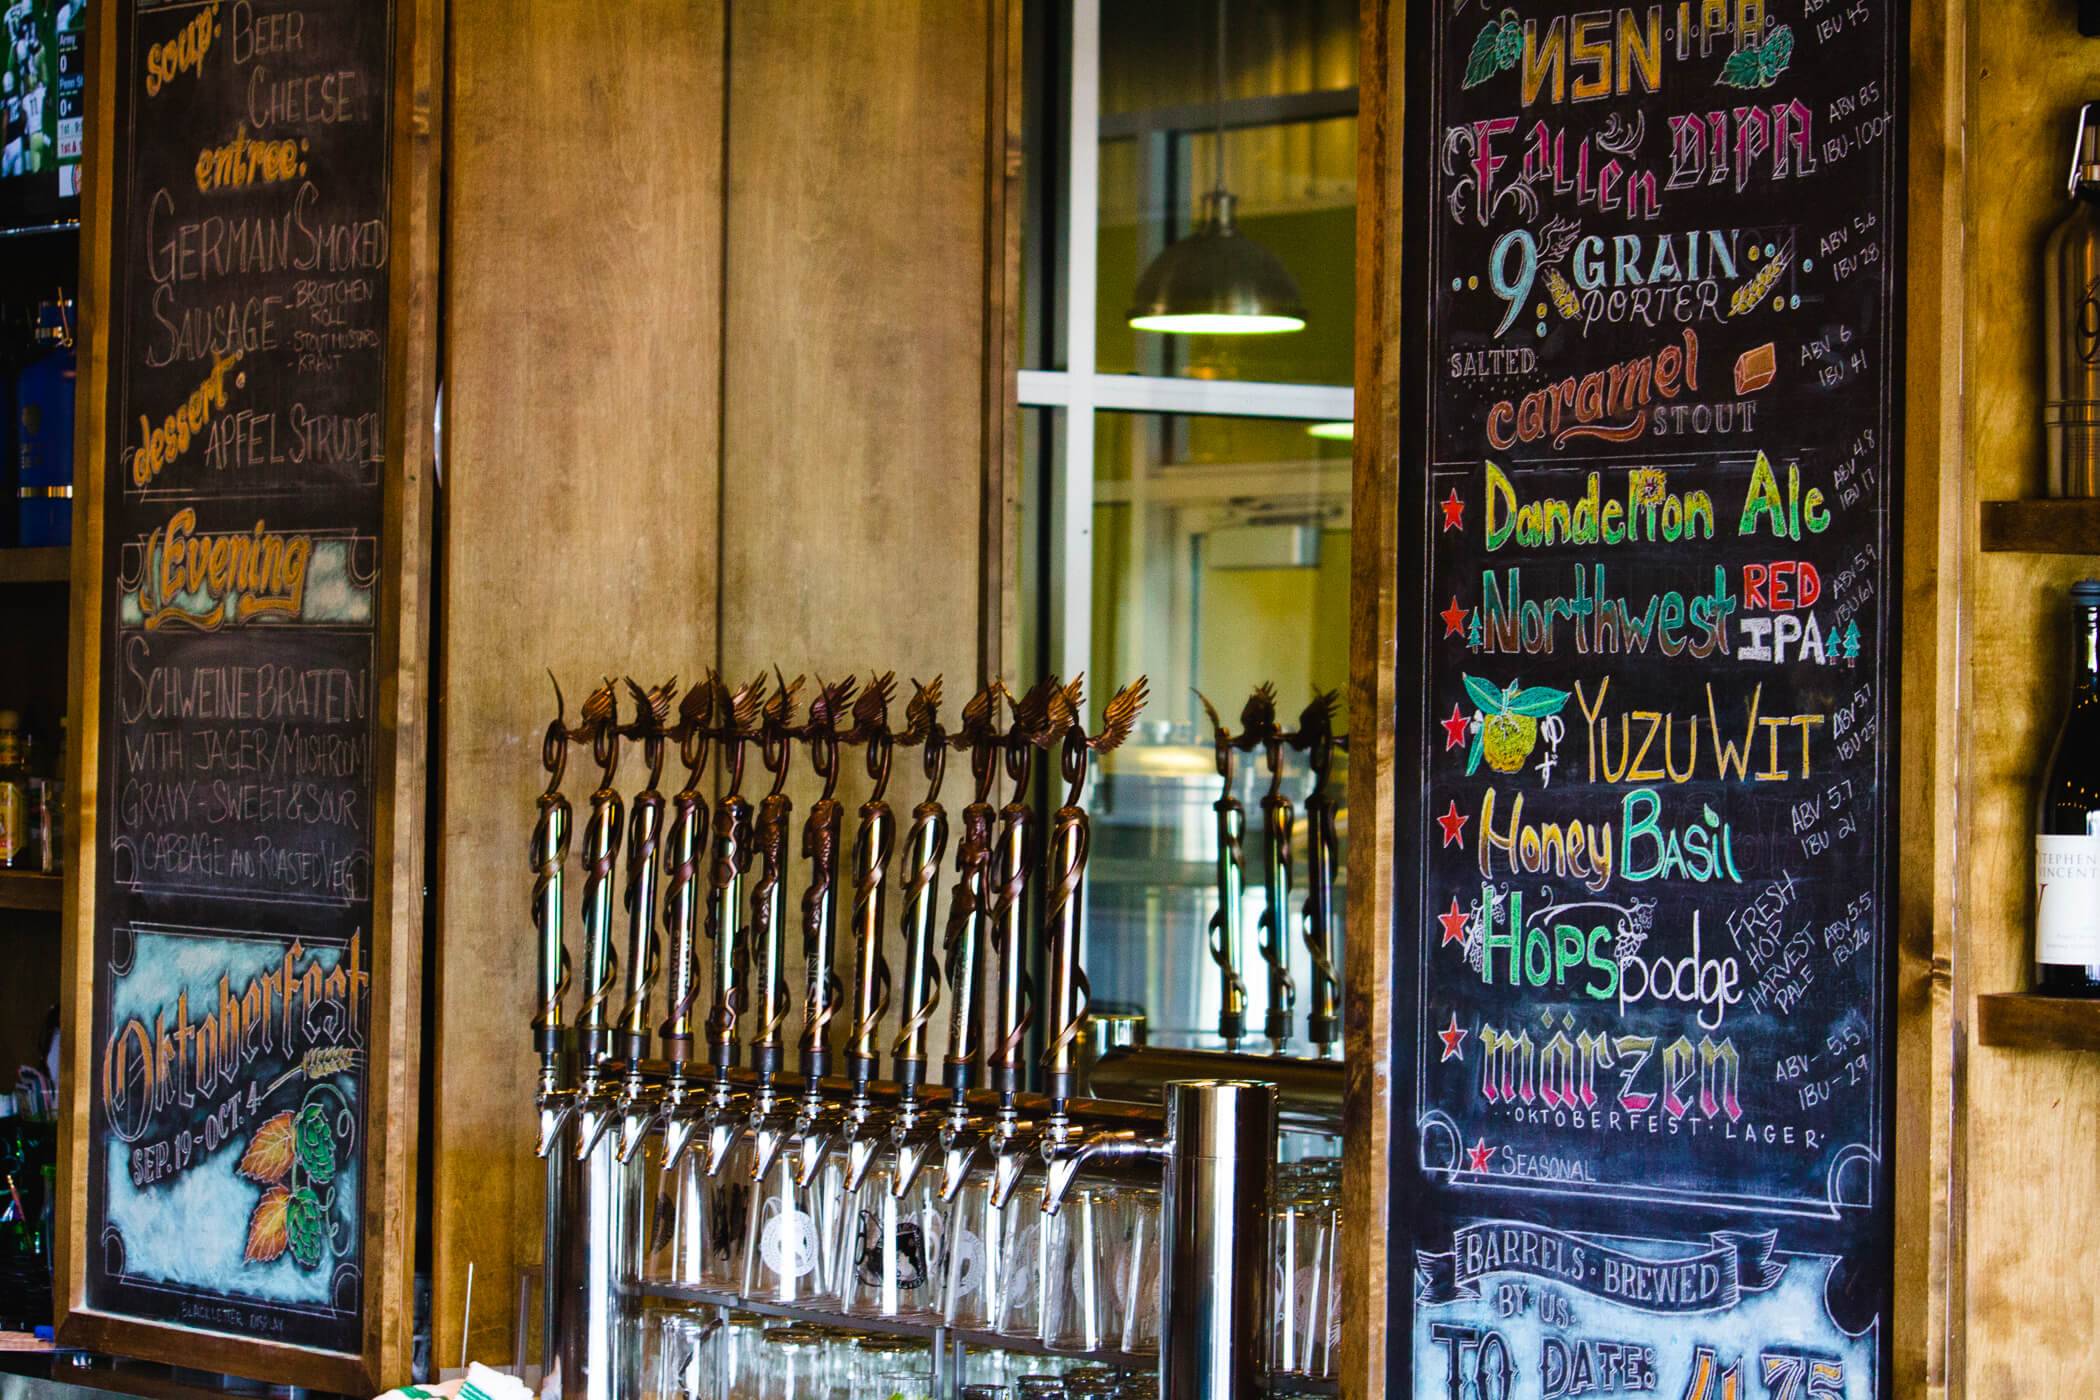 Army
0
Penn St
0
soup: BEER
CHEESE
entree:
GERMAN SMOKED
SAUSAGE
- BROTCHEN
ROLL
- STOUT MUSTARD
- KRAUT
dessert:
APFEL STRUDEL
Evening
SCHWEINEBRATEN
WITH JAGER/MUSHROOM
GRAVY - SWEET & SOUR
CABBAGE AND ROASTED VEG
Oktoberfest
SEP. 19 - OCT. 4
BLACKLETTER DISPLAY
NSN·I.P.A.
IBU 45
Fallen DIPA
ABV 8.5
IBU-100+
9 GRAIN
PORTER
ABV 5.6
IBU 28
SALTED
caramel
STOUT
ABV 6
IBU 41
Dandelion Ale
ABV 4.8
IBU 17
Northwest RED
IPA
ABV 5.9
IBU 61
ゆず
YUZU WIT
ABV 5.7
IBU 25
Honey BASil
ABV 5.7
IBU 21
HOPSpodge
FRESH
HOP
HARVEST
PALE
ABV 5.5
IBU 26
märzen
·OKTOBERFEST·LAGER·
ABV - 5.5
IBU - 29
SEASONAL
BARRELS · BREWED
· BY · US ·
TO DATE: 4175
STEPHEN
VINCENT